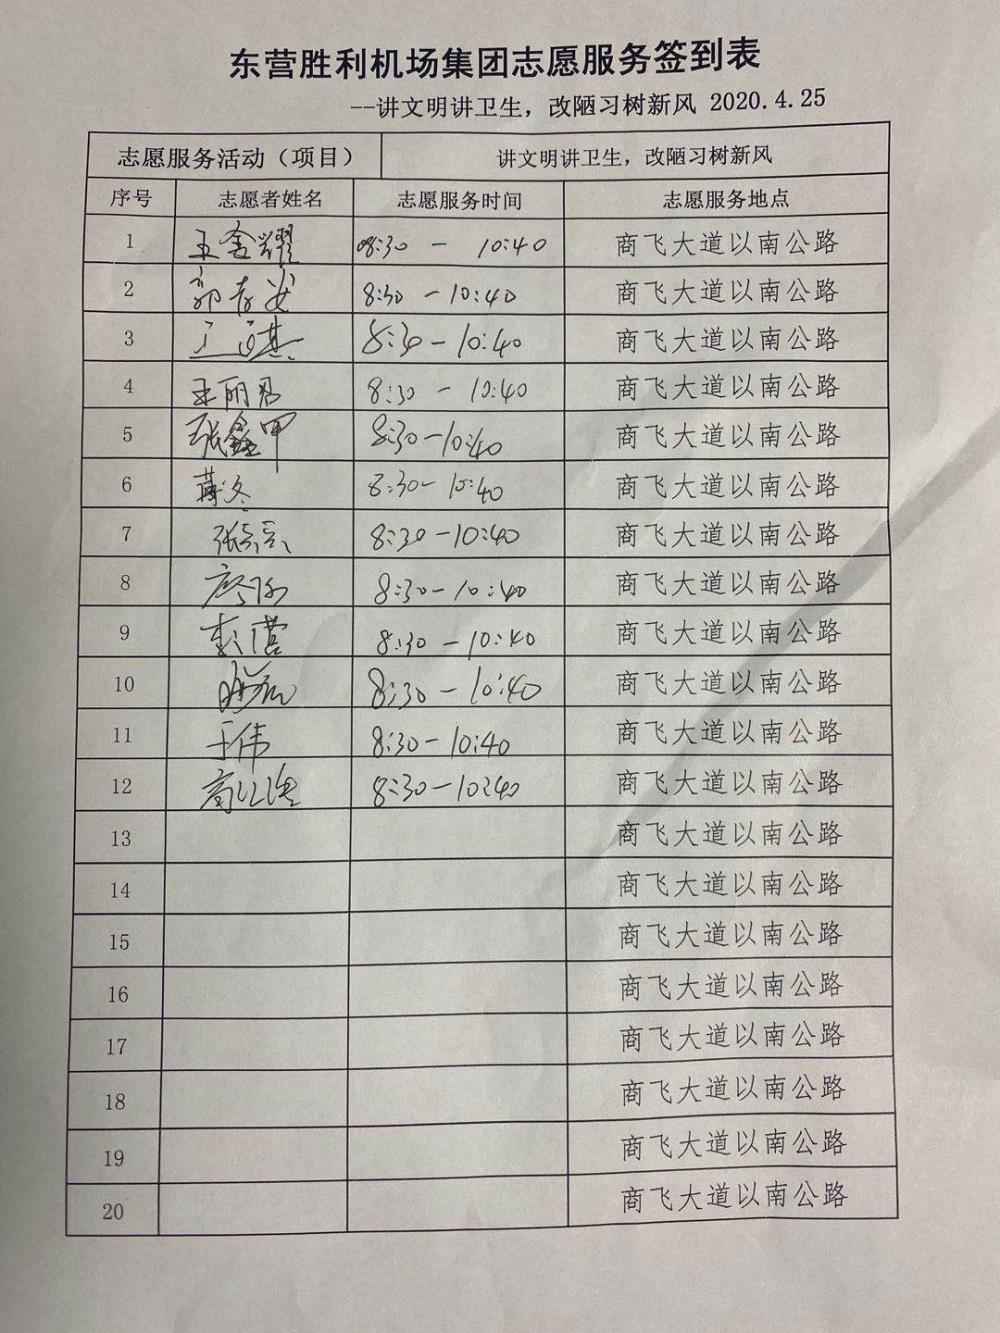 东营胜利机场集团志愿服务签到表
--讲文明讲卫生，改陋习树新风 2020.4.25
志愿服务活动（项目） 讲文明讲卫生，改陋习树新风
序号 志愿者姓名 志愿服务时间 志愿服务地点
1 王金耀 08:30 - 10:40 商飞大道以南公路
2 8:30 - 10:40 商飞大道以南公路
3 8:30 - 10:40 商飞大道以南公路
4 王丽君 8:30 - 10:40 商飞大道以南公路
5 张鑫甲 8:30-10:40 商飞大道以南公路
6 蒋冬 8:30- 10:40 商飞大道以南公路
7 8:30-10:40 商飞大道以南公路
8 8:30-10:40 商飞大道以南公路
9 8:30-10:40 商飞大道以南公路
10 8:30-10:40 商飞大道以南公路
11 于伟 8:30-10:40 商飞大道以南公路
12 8:30-10:40 商飞大道以南公路
13 商飞大道以南公路
14 商飞大道以南公路
15 商飞大道以南公路
16 商飞大道以南公路
17 商飞大道以南公路
18 商飞大道以南公路
19 商飞大道以南公路
20 商飞大道以南公路